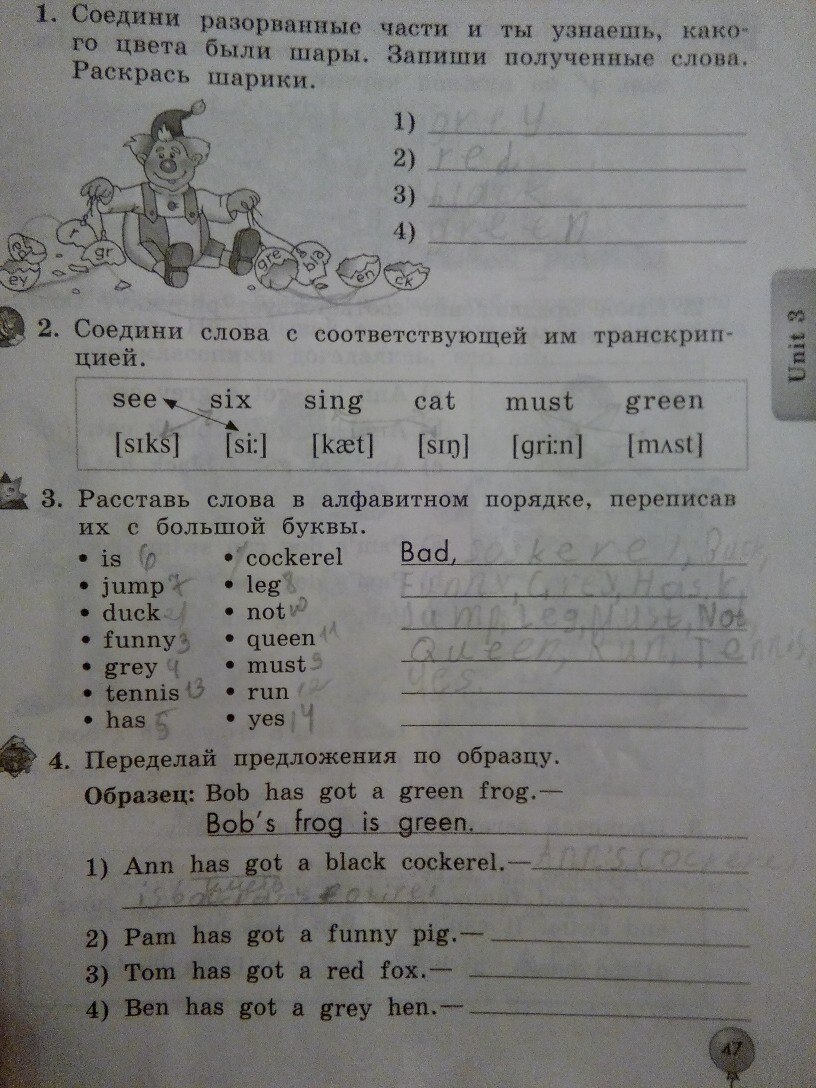 1. Соедини разорванные части и ты узнаешь, како-
го цвета были шары. Запиши полученные слова.
Раскрась шарики.
1) grey
2) red
3) black
4) green
r
gr
ey
gre
bla
en
ck
2. Соедини слова с соответствующей им транскрип-
цией.
see six sing cat must green
[sɪks] [si:] [kæt] [sɪŋ] [gri:n] [mʌst]
Unit 3
3. Расставь слова в алфавитном порядке, переписав
их с большой буквы.
• is 6 • cockerel 1 Bad,
• jump 7 • leg 8 Funny, Grey, Has,
• duck • not 10 Jump, Leg, Must, Not
• funny 3 • queen 11 Queen, Run, Tennis,
• grey 4 • must 9 Yes.
• tennis 13 • run 12
• has 5 • yes 14
4. Переделай предложения по образцу.
Образец: Bob has got a green frog.—
Bob's frog is green.
1) Ann has got a black cockerel.— Ann's cockerel
is
2) Pam has got a funny pig.—
3) Tom has got a red fox.—
4) Ben has got a grey hen.—
47